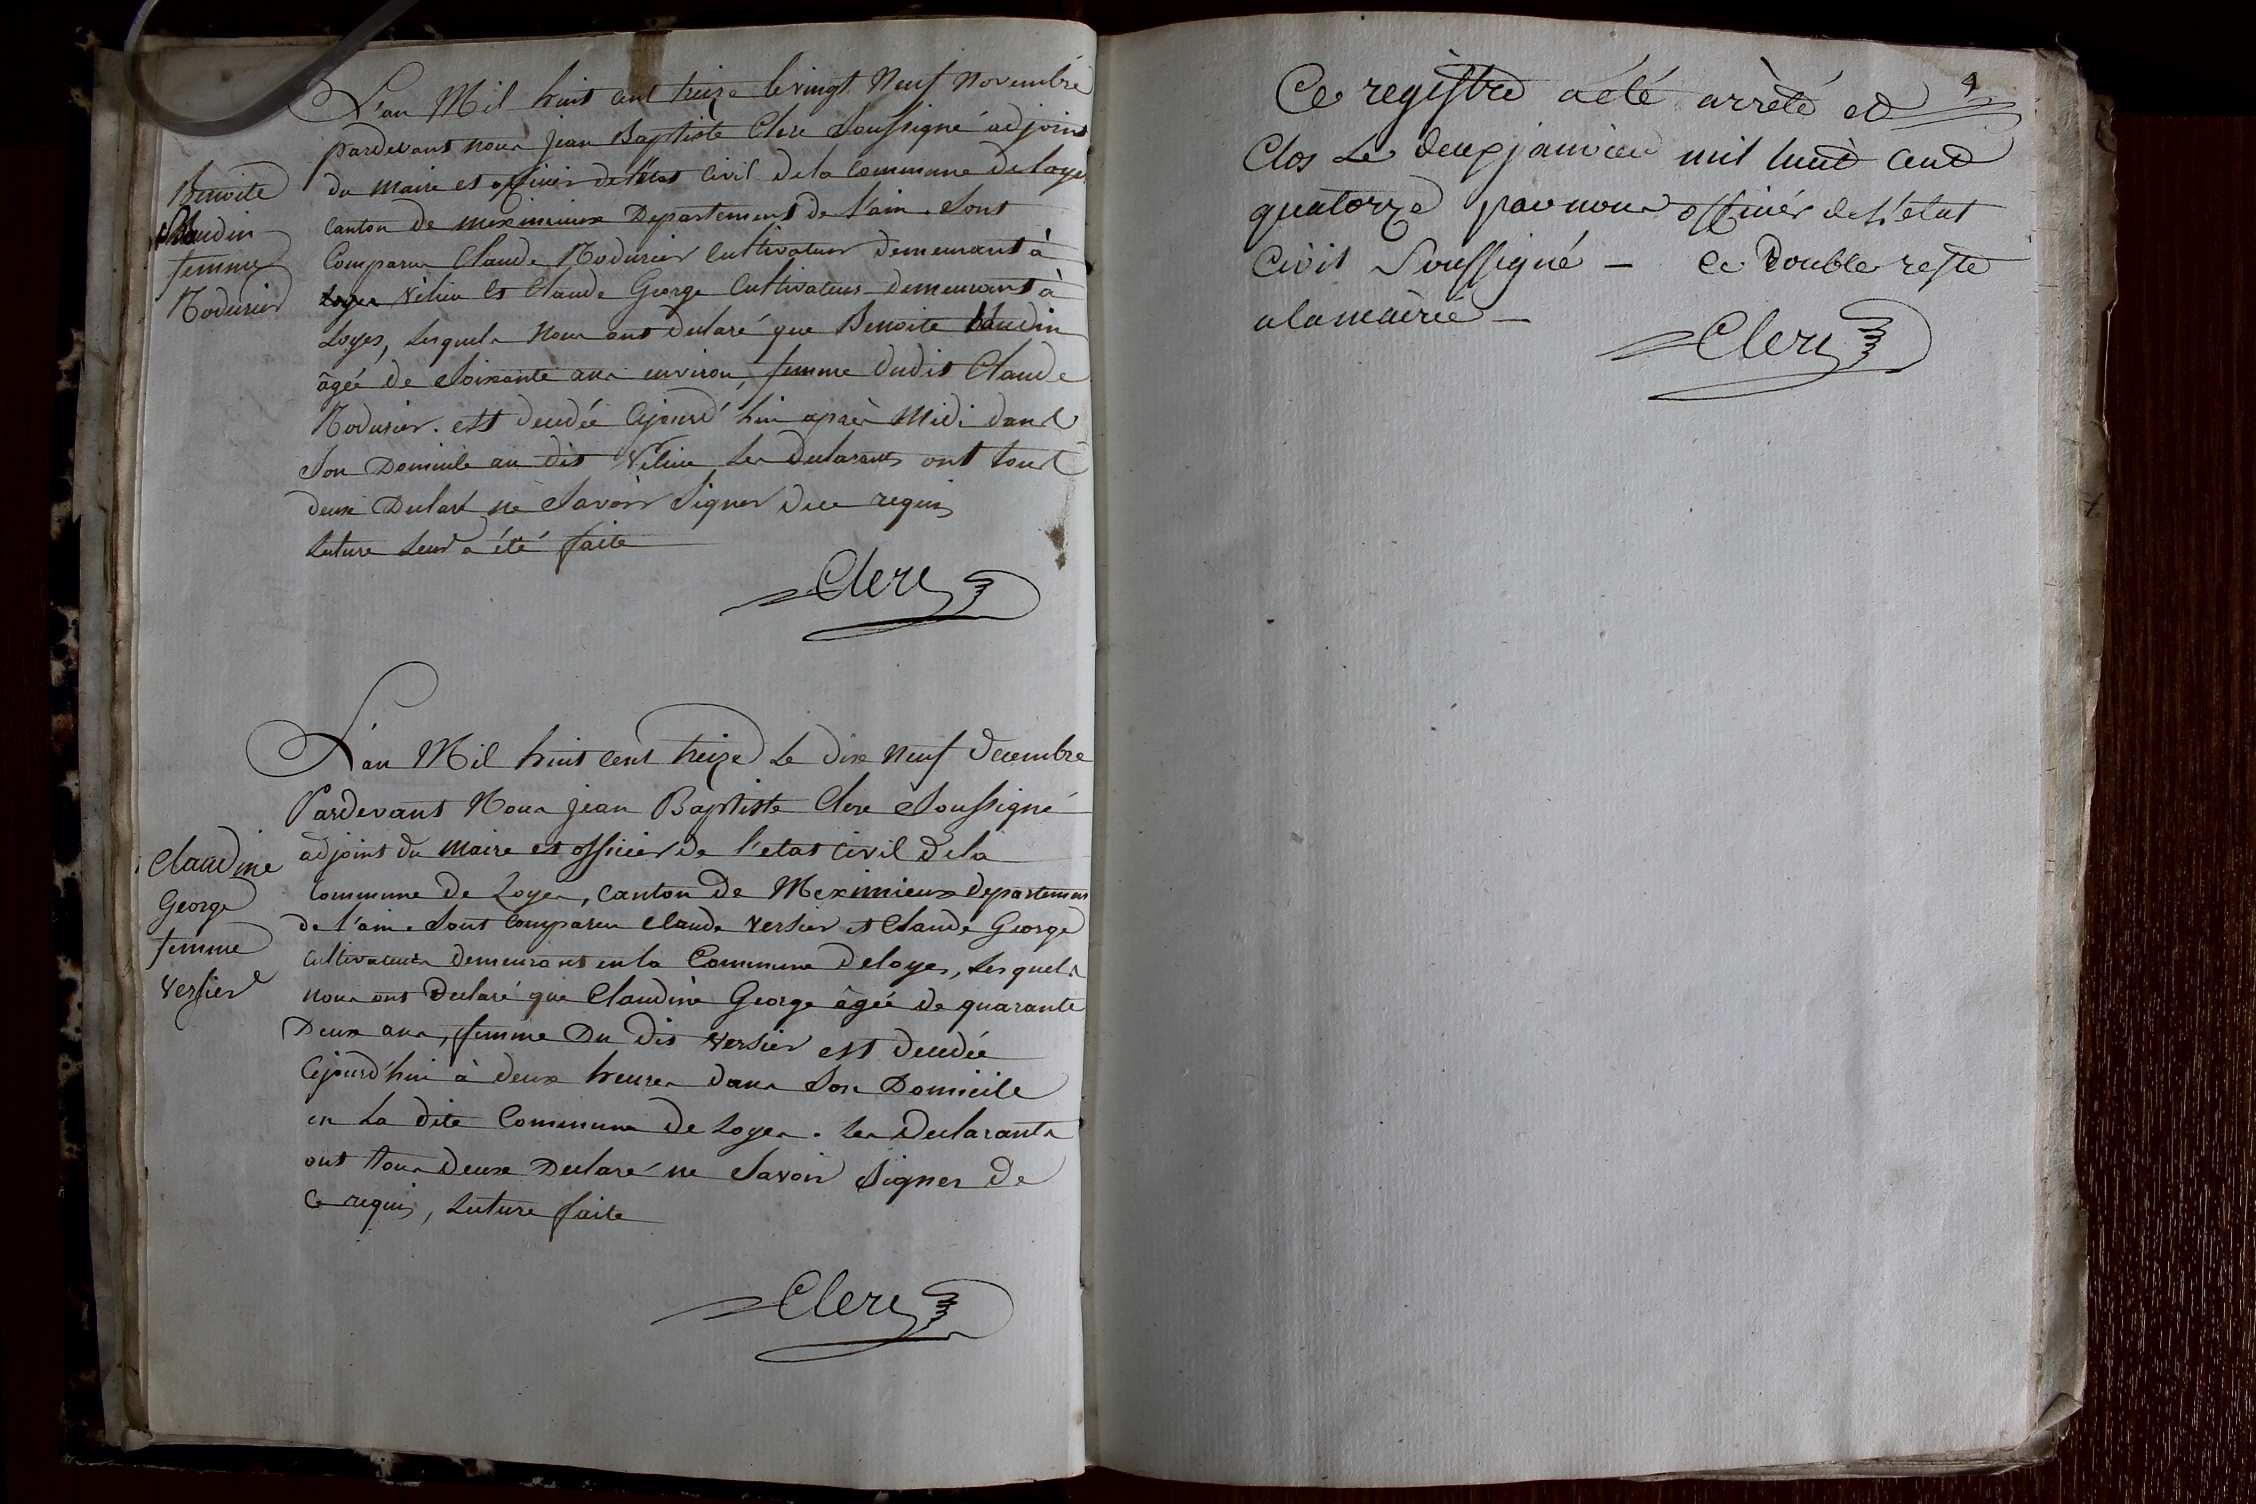 L'an Mil huit cent treize le vingt Neuf Novembre
pardevant nous jean Baptiste Clerc Soussigné adjoint
du maire et officier de l'état Civil de la Commune de loyes
Canton de meximieux Departement de l'ain. Sont
Comparu Claude Rodurier Cultivateur demeurant à
Vilieu et Claude George Cultivateur demeurant à
Loyes, Lesquels nous ont declaré que Benoite
âgée de Soixante ans environ, femme dudit Claude
Rodurier. est decedée Cejourd'hui après Midi dans
Son Domicile au dit Vilieu Les Declarants ont tous
deux Declaré ne Savoir Signer de ce requis
Lecture Leur a été faite
Clerc
Benoite
femme
Rodurier
L'an Mil huit cent treize Le dix Neuf Decembre
Pardevant Nous jean Baptiste Clerc Soussigné
adjoint du Maire et officier de l'etat civil de la
Commune de Loyes, Canton de Meximieux departement
de l'ain. Sont Comparu Claude Versier et Claude George
Cultivateurs demeurants en la Commune de loyes, Lesquels
nous ont declaré que Claudine George âgée de quarante
Deux ans, femme Du dit Versier est decedée
Cejourd'hui à deux heures dans Son Domicile
en La dite Commune de Loyes. Les Declarants
ont tous deux Declaré ne Savoir Signer de
Ce requis, Lecture faite
Clerc
Claudine
George
femme
Versier
4
Ce registre a été arrèté et
Clos Le deux janvier mil huit cent
quatorze par nous officier de L'etat
Civil Soussigné — Ce Double reste
a la mairie —
Clerc